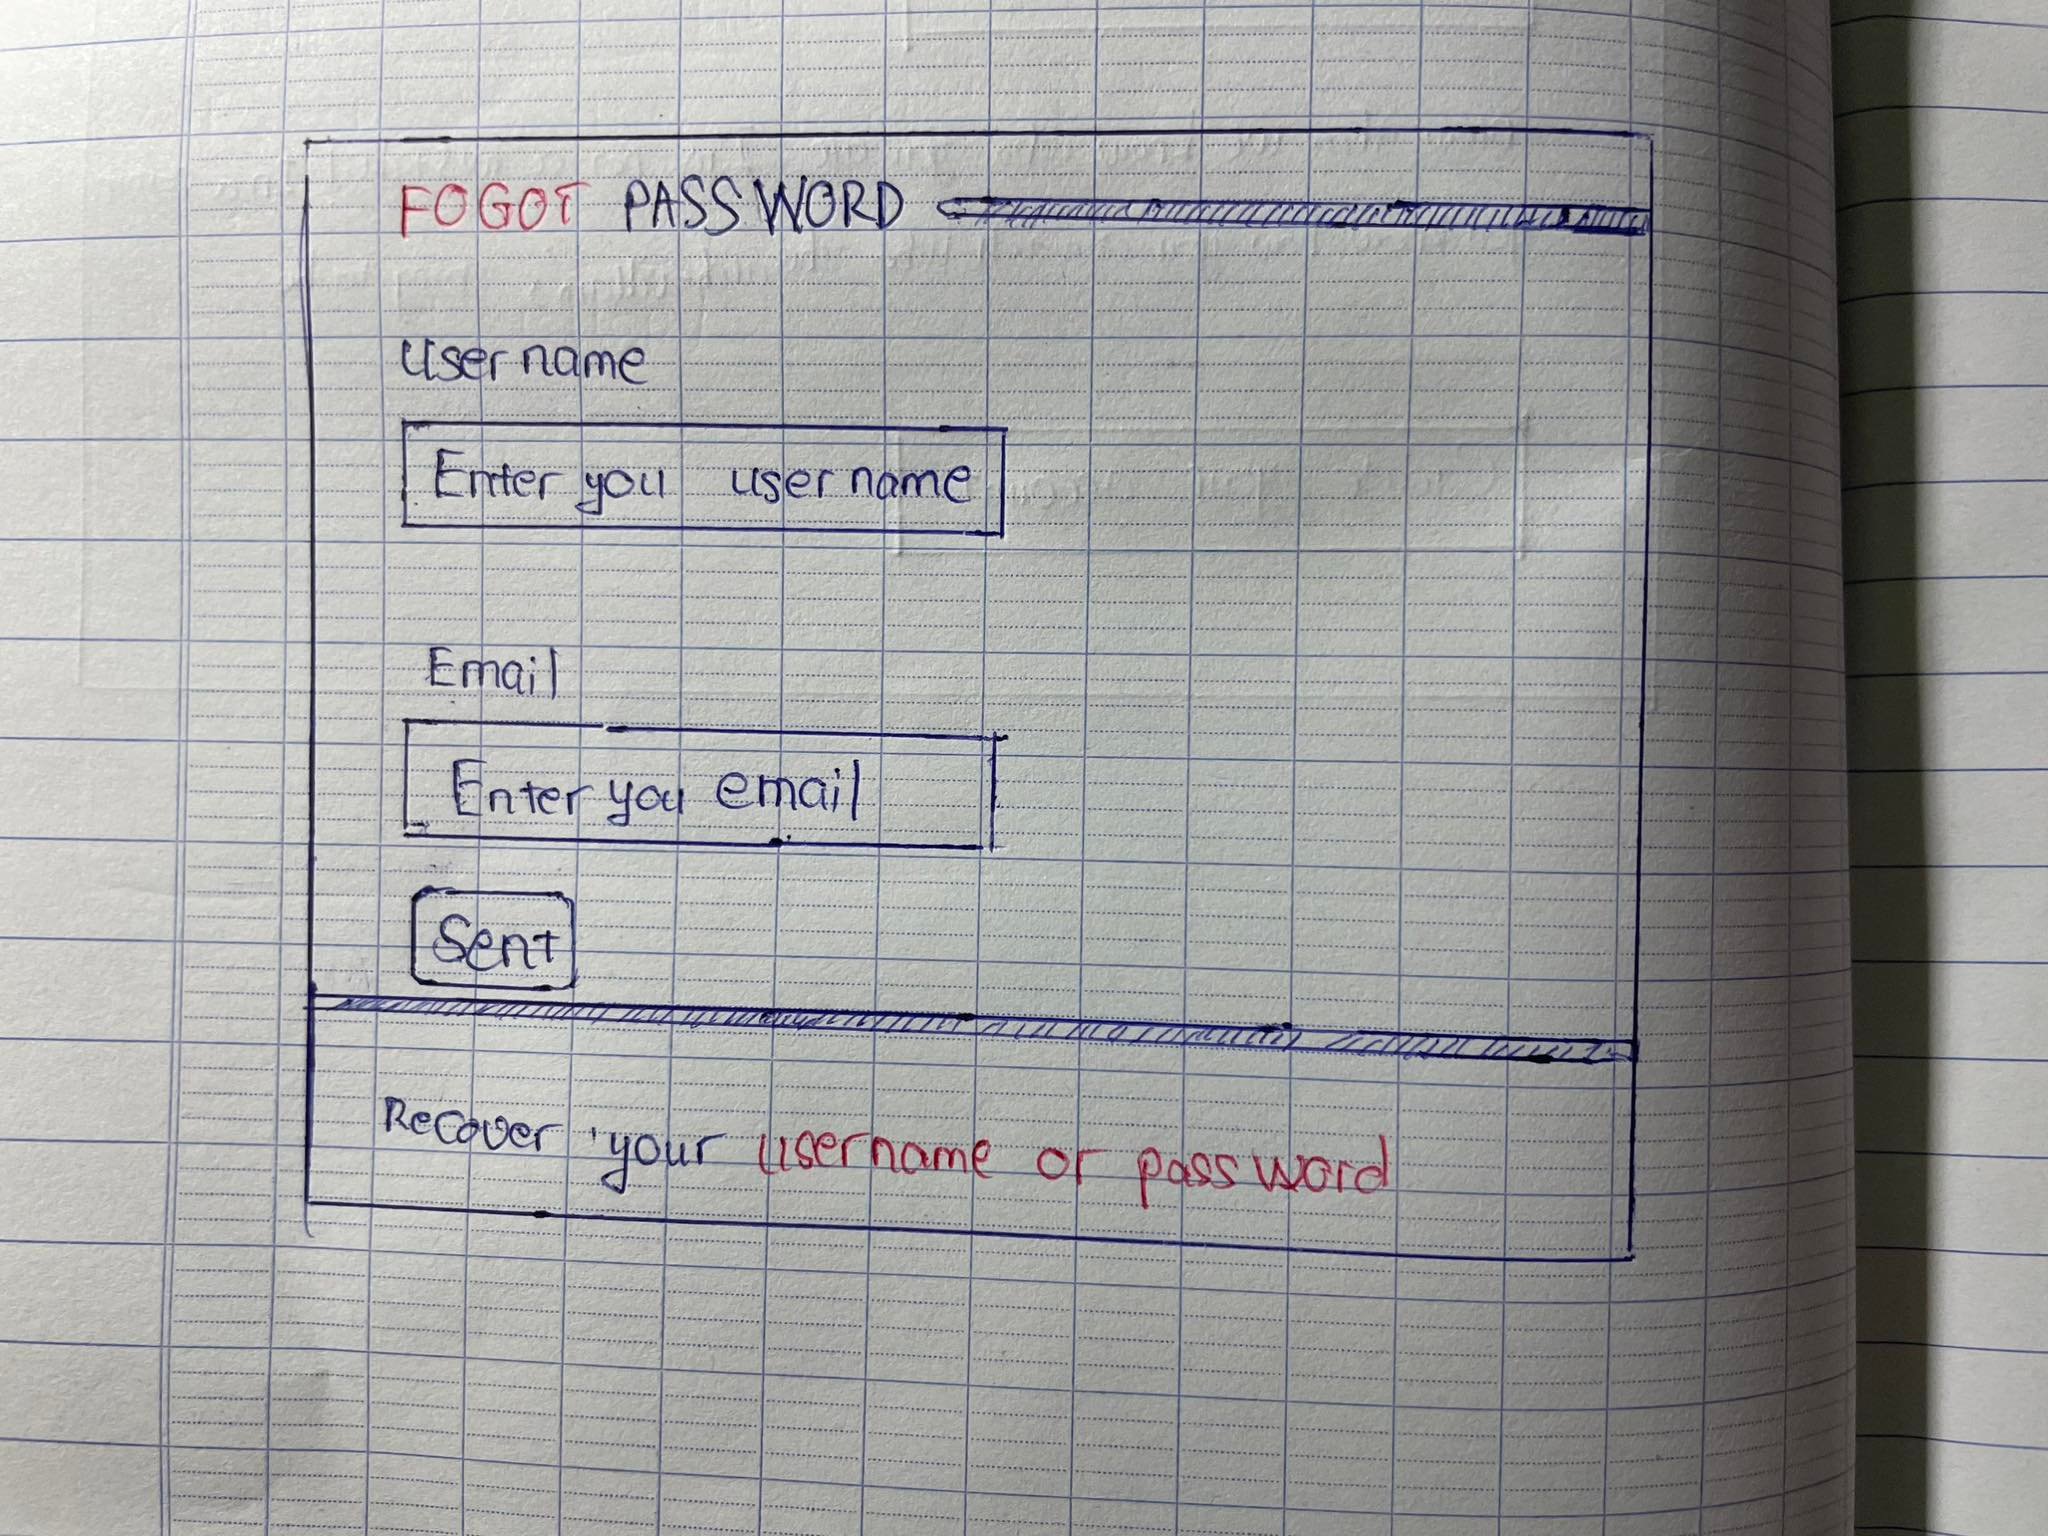 FOGOT PASSWORD
username
Enter you username
Email
Enter you email
Sent
Recover your username or password